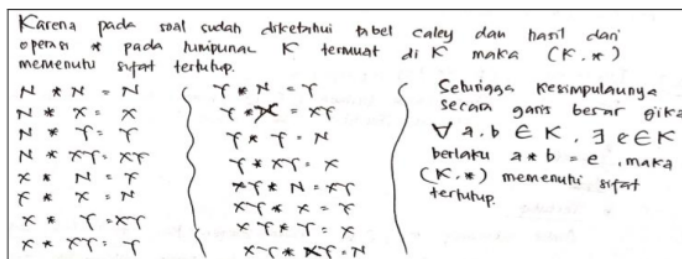 Karena pada soal sudah diketahui tabel caley dan hasil dari
operasi * pada himpunan K termuat di K maka (K, *)
memenuhi sifat tertutup.
N * N = N
N * X = X
N * Y = Y
N * XY = XY
X * N = X
X * X = N
X * Y = XY
X * XY = Y
Y * N = Y
Y * X = XY
Y * Y = N
Y * XY = X
XY * N = XY
XY * X = Y
XY * Y = X
XY * XY = N
Sehingga kesimpulannya
secara garis besar jika
∀ a, b ∈ K, ∃ e ∈ K
berlaku a * b = e, maka
(K, *) memenuhi sifat
tertutup.